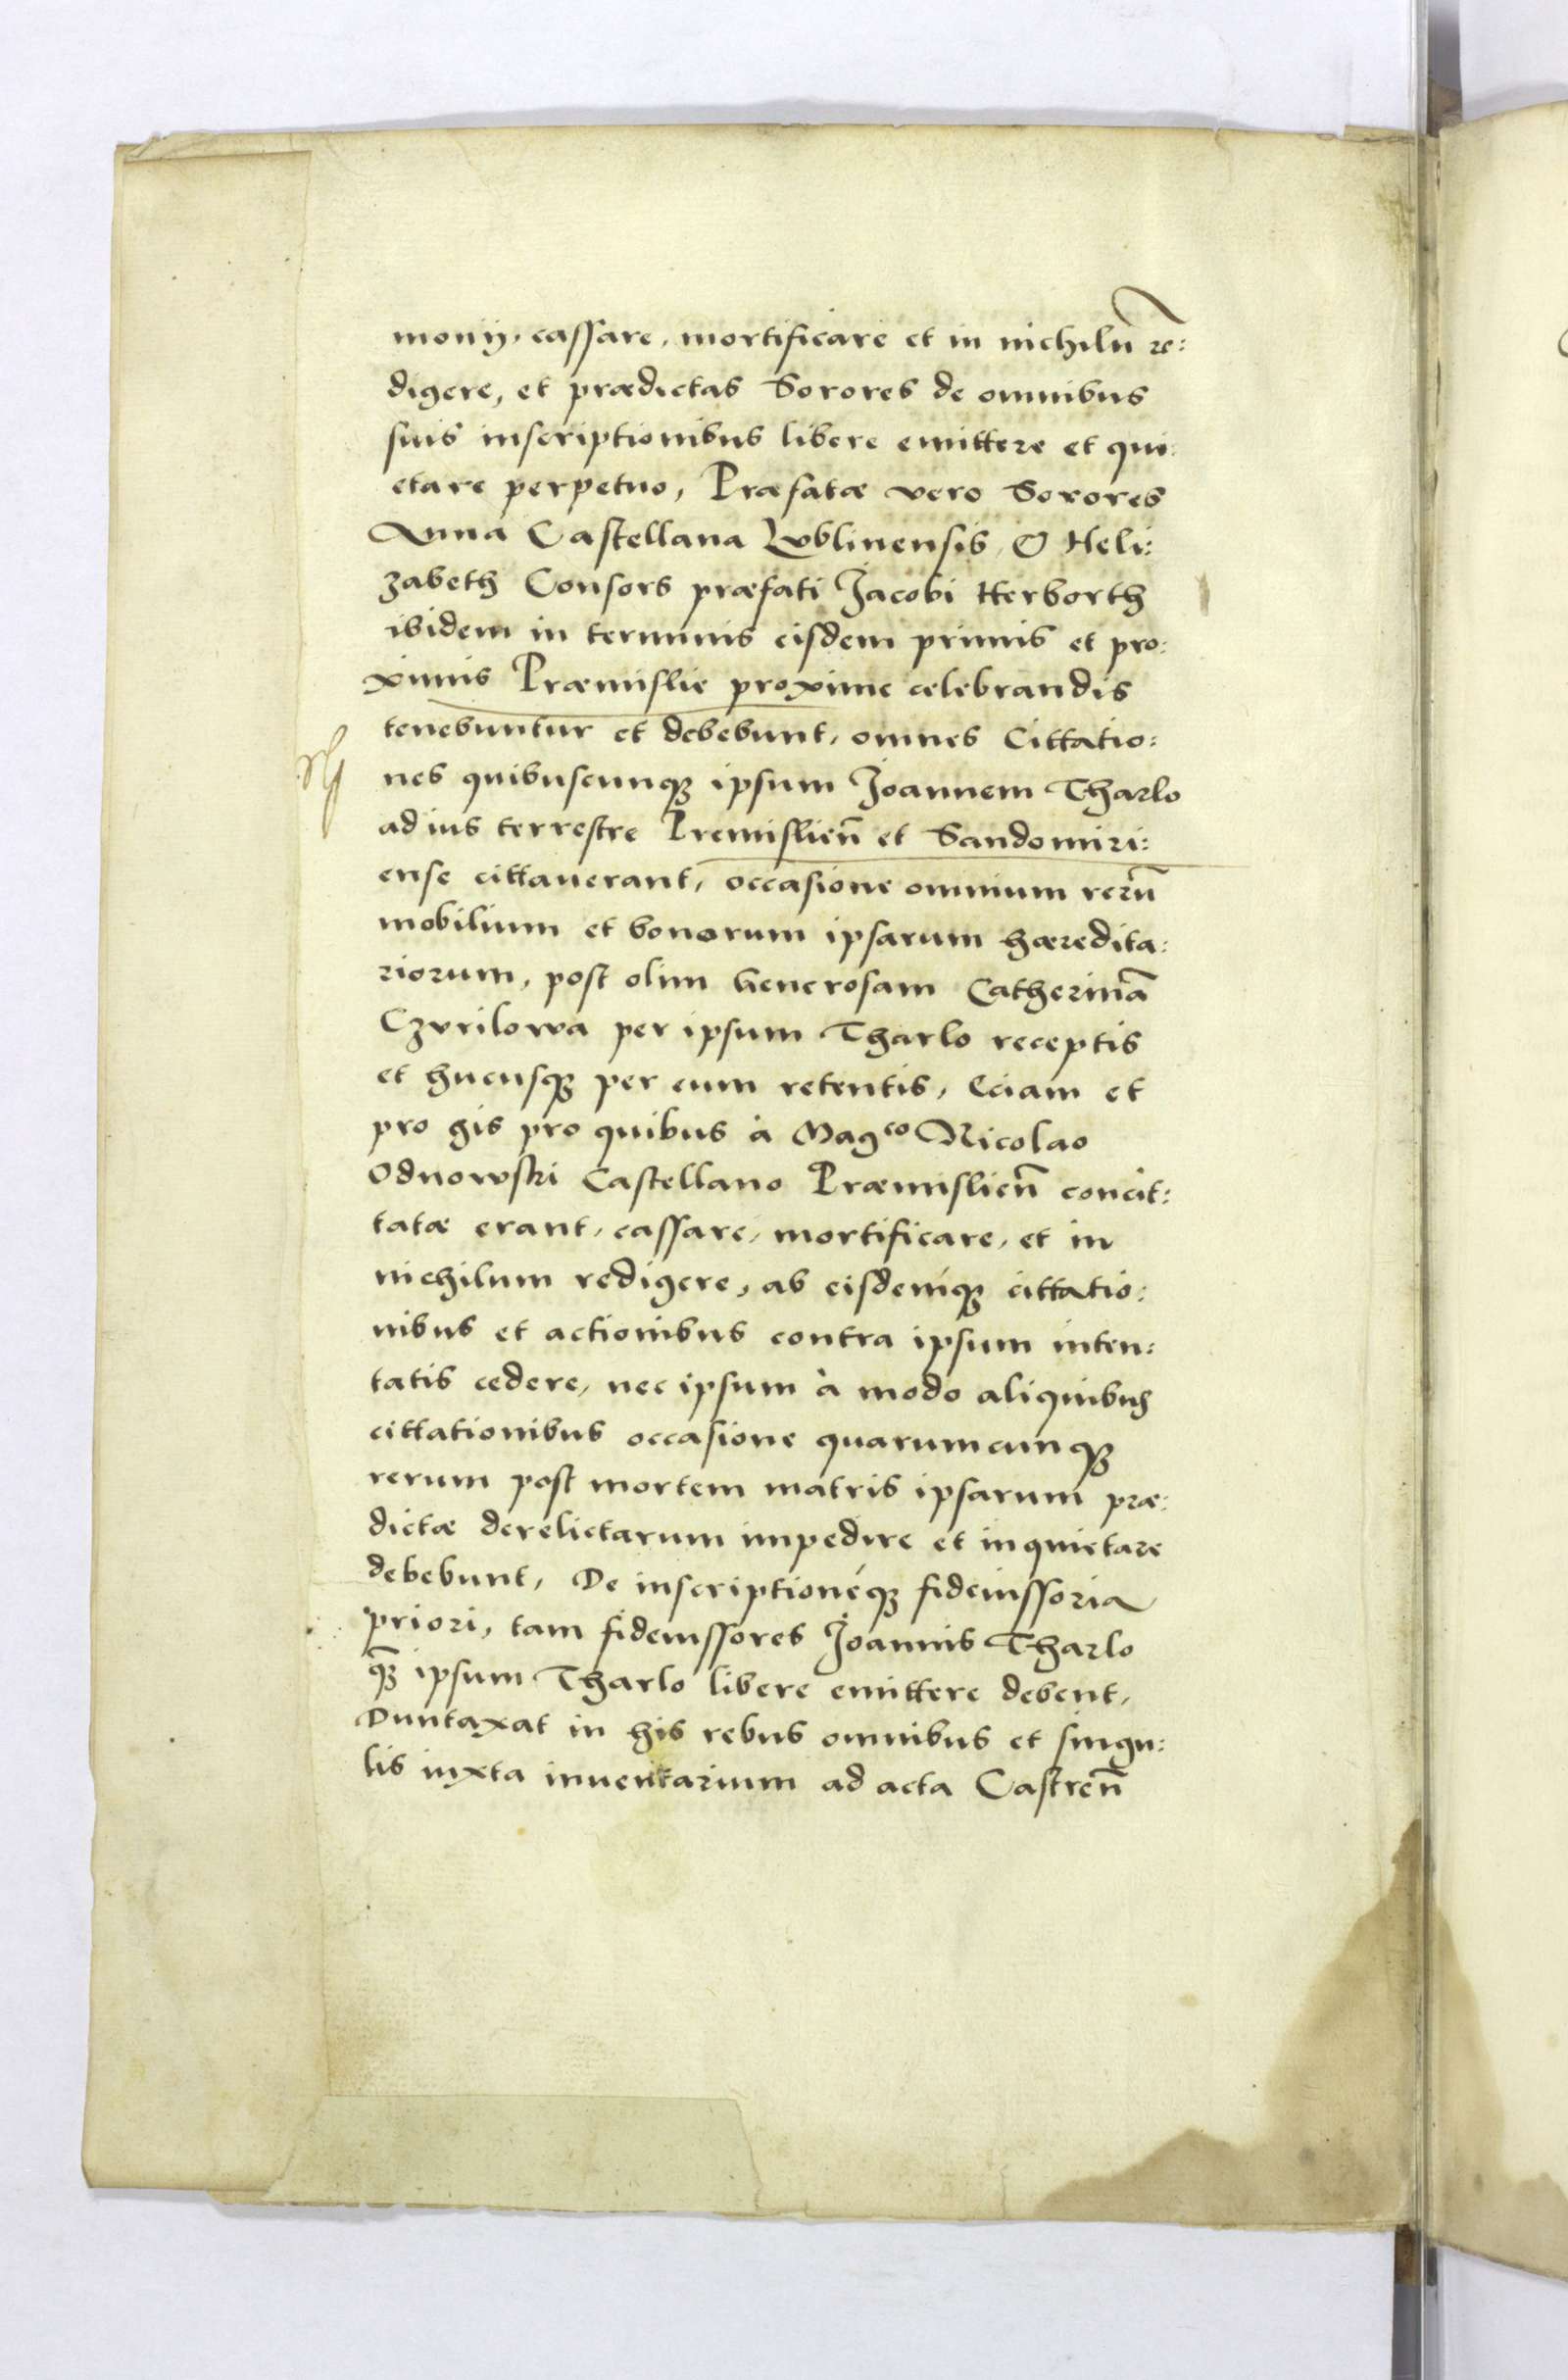 monij, cassare, mortificare et in nichilũ re:
digere, et prædictas Sorores de omnibus
suis inscriptionibus libere emittere et qui:
etare perpetuo, Præfatæ vero Sorores
Anna Castellana Lublinensis, & Heli:
zabeth Consors præfati Jacobi Herborth
ibidem in terminis eisdem primis et pro:
ximis Præmislie proxime celebrandis
tenebuntur et debebunt, omnes Cittatio:
nes quibuscunqꝫ ipsum Joannem Tharlo
ad ius terrestre Premislien̄ et Sandomiri:
ense cittauerant, occasione omnium rerũ
mobilium et bonorum ipsarum hæredita:
riorum, post olim Generosam Catherinã
Czurilowa per ipsum Tharlo receptis
et hucusqꝫ per eum retentis, Eciam et
pro his pro quibus à Magᶜᵒ Nicolao
Odnowski Castellano Præmislien̄ concit:
tatæ erant, cassare, mortificare, et in
nichilum redigere, ab eisdemqꝫ cittatio:
nibus et actionibus contra ipsum inten:
tatis cedere, nec ipsum à modo aliquibus
cittationibus occasione quarumcunqꝫ
rerum post mortem matris ipsarum præ:
dictæ derelictarum impedire et inquietare
debebunt, De inscriptionéqꝫ fideiussoria
priori, tam fideiussores Joannis Tharlo
q̃ꝫ ipsum Tharlo libere emittere debent,
Duntaxat in his rebus omnibus et singu:
lis iuxta inuentarium ad acta Castren̄